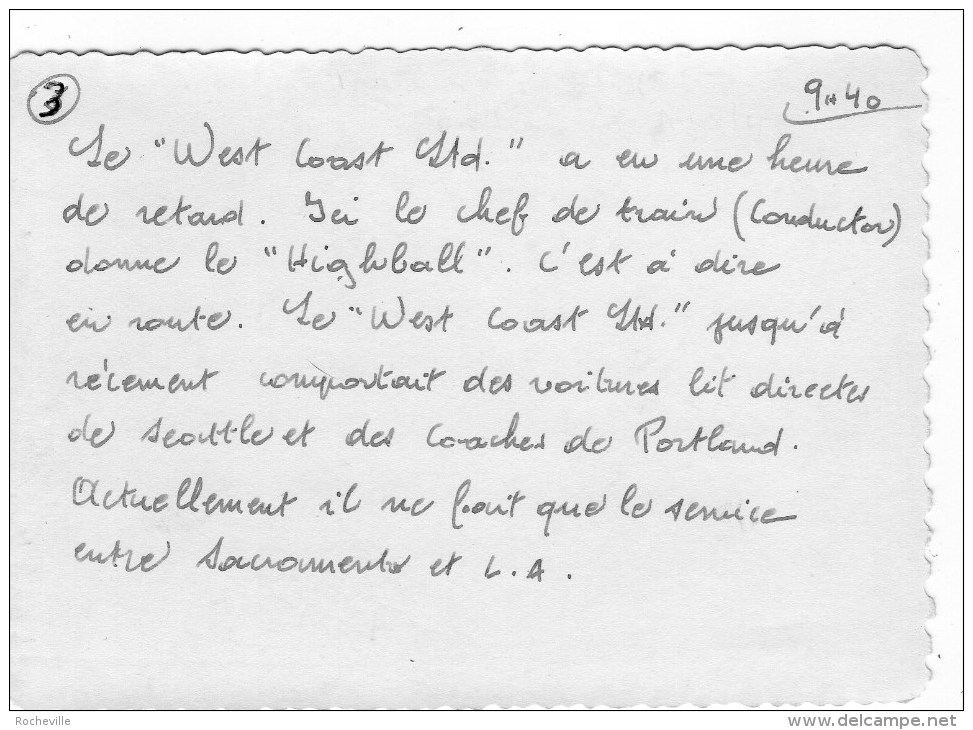 3
9H40
Le "West Coast Ltd." a eu une heure
de retard. Ici le chef de train (Conductor)
donne le "Highball". C'est à dire
en route. Le "West Coast Ltd." jusqu'à
récement comportait des voitures lit directes
de Seattle et des Coaches de Portland.
Actuellement il ne fait que le service
entre Sacramento et L.A.
Rocheville
www.delcampe.net